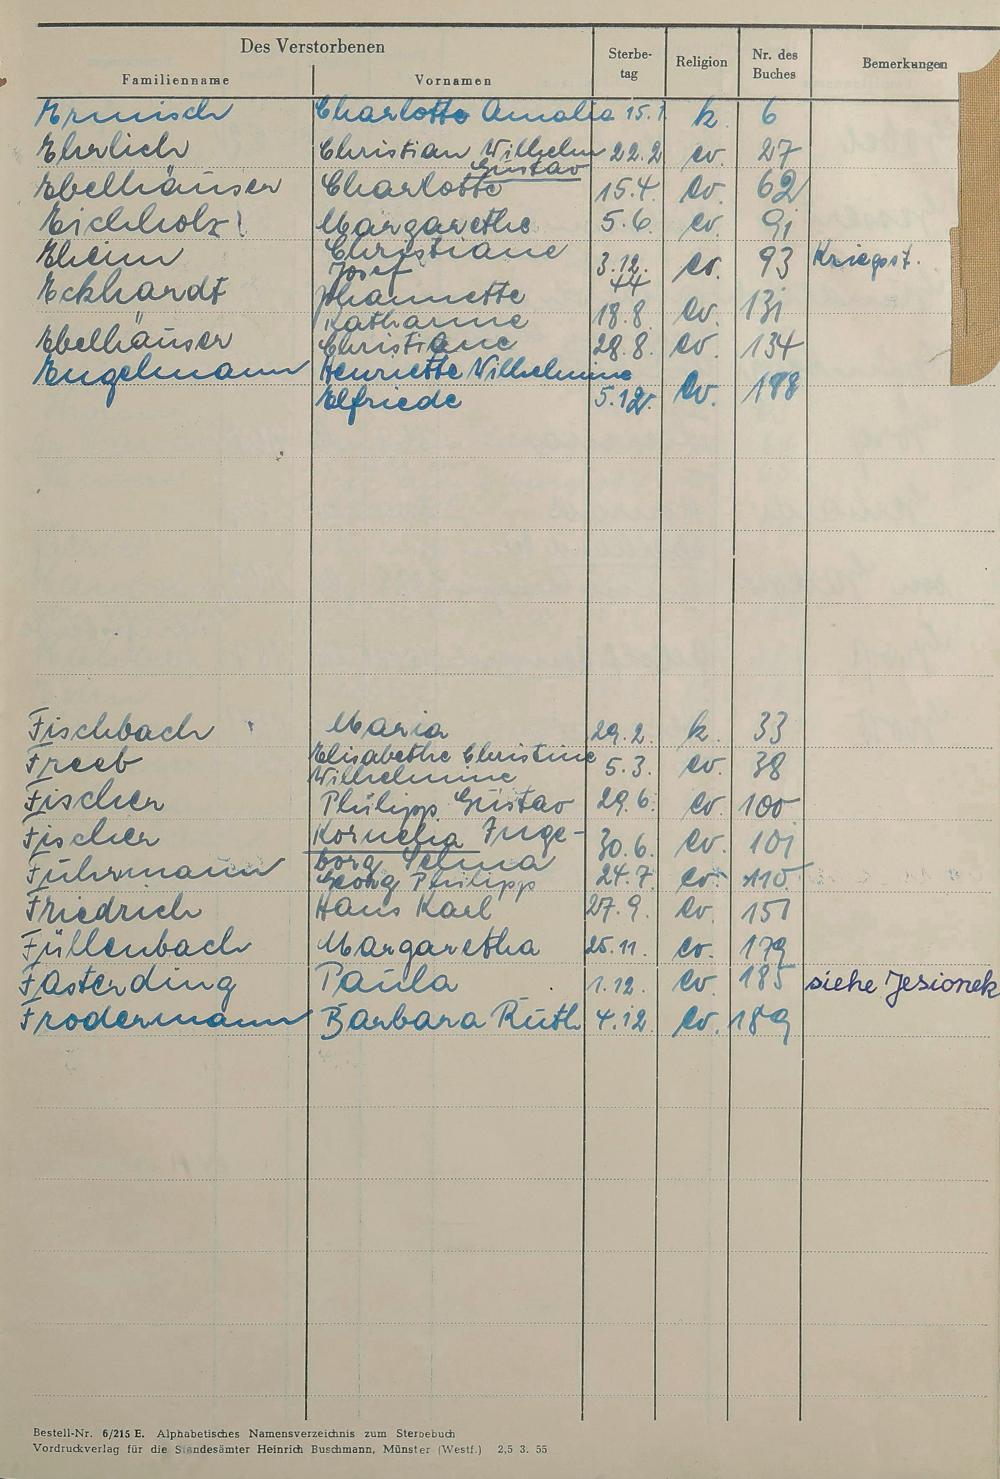 Des Verstorbenen
Familienname Vornamen Sterbe-tag Religion Nr. des Buches Bemerkungen
Ermisch Charlotte Amalia 15.1 k. 6
Ehrlich Christian Wilhelm 22.2 ev. 27
Gustav
Ebelhäuser Charlotte 15.4. ev. 62
Eichholz Margarethe 5.6. ev. 91
Christiane
Eheim Josef 3.12.44 ev. 93 Kriegsst.
Eckhardt Jhannette
Katharine 18.8. ev. 131
Ebelhäuser Christiane 28.8. ev. 134
Engelmann Henriette Wilhelmine
Elfriede 5.12. ev. 188
Fischbach Maria 29.2. k. 33
Freeb Elisabethe Christine 5.3. ev. 38
Wilhelmine
Fischer Philipp Gustav 29.6. ev. 100
Fischer Kornelia Inge- 30.6. ev. 101
borg Selma
Führmann Georg Philipp 24.7. ev. 110
Friedrich Hans Karl 27.9. ev. 151
Füllenbach Margaretha 25.11. ev. 179
Fasterding Paula 1.12. ev. 185 siehe Jesionek
Frodermann Barbara Ruth 4.12. ev. 189
Bestell-Nr. 6/215 E. Alphabetisches Namensverzeichnis zum Sterbebuch
Vordruckverlag für die Standesämter Heinrich Buschmann, Münster (Westf.) 2,5 3. 55